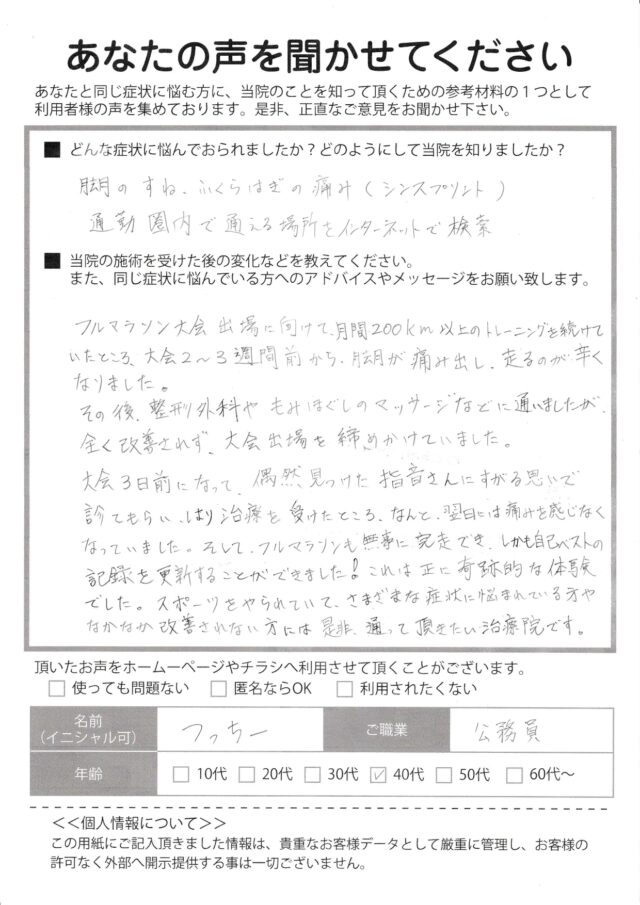 あなたの声を聞かせてください
あなたと同じ症状に悩む方に、当院のことを知って頂くための参考材料の１つとして
利用者様の声を集めております。是非、正直なご意見をお聞かせ下さい。
■ どんな症状に悩んでおられましたか？どのようにして当院を知りましたか？
脚のすね、ふくらはぎの痛み（シンスプリント）
通勤圏内で通える場所をインターネットで検索
■ 当院の施術を受けた後の変化などを教えてください。
また、同じ症状に悩んでいる方へのアドバイスやメッセージをお願い致します。
フルマラソン大会出場に向けて、月間200km以上のトレーニングを続けて
いたところ、大会2～3週間前から、脚が痛み出し、走るのが辛く
なりました。
その後、整形外科やもみほぐしのマッサージなどに通いましたが、
全く改善されず、大会出場を締めかけていました。
大会3日前になって、偶然見つけた指音さんにすがる思いで
診てもらい、はり治療を受けたところ、なんと、翌日には痛みを感じなく
なっていました。そして、フルマラソンも無事に完走でき、しかも自己ベストの
記録を更新することができました！これは正に奇跡的な体験
でした。スポーツをやられていて、さまざまな症状に悩まれている方や
なかなか改善されない方には是非、通って頂きたい治療院です。
頂いたお声をホームーページやチラシへ利用させて頂くことがございます。
□ 使っても問題ない □ 匿名ならOK □ 利用されたくない
名前
（イニシャル可）
つっちー
ご職業
公務員
年齢
□ 10代 □ 20代 □ 30代 ☑ 40代 □ 50代 □ 60代～
＜＜個人情報について＞＞
この用紙にご記入頂きました情報は、貴重なお客様データとして厳重に管理し、お客様の
許可なく外部へ開示提供する事は一切ございません。